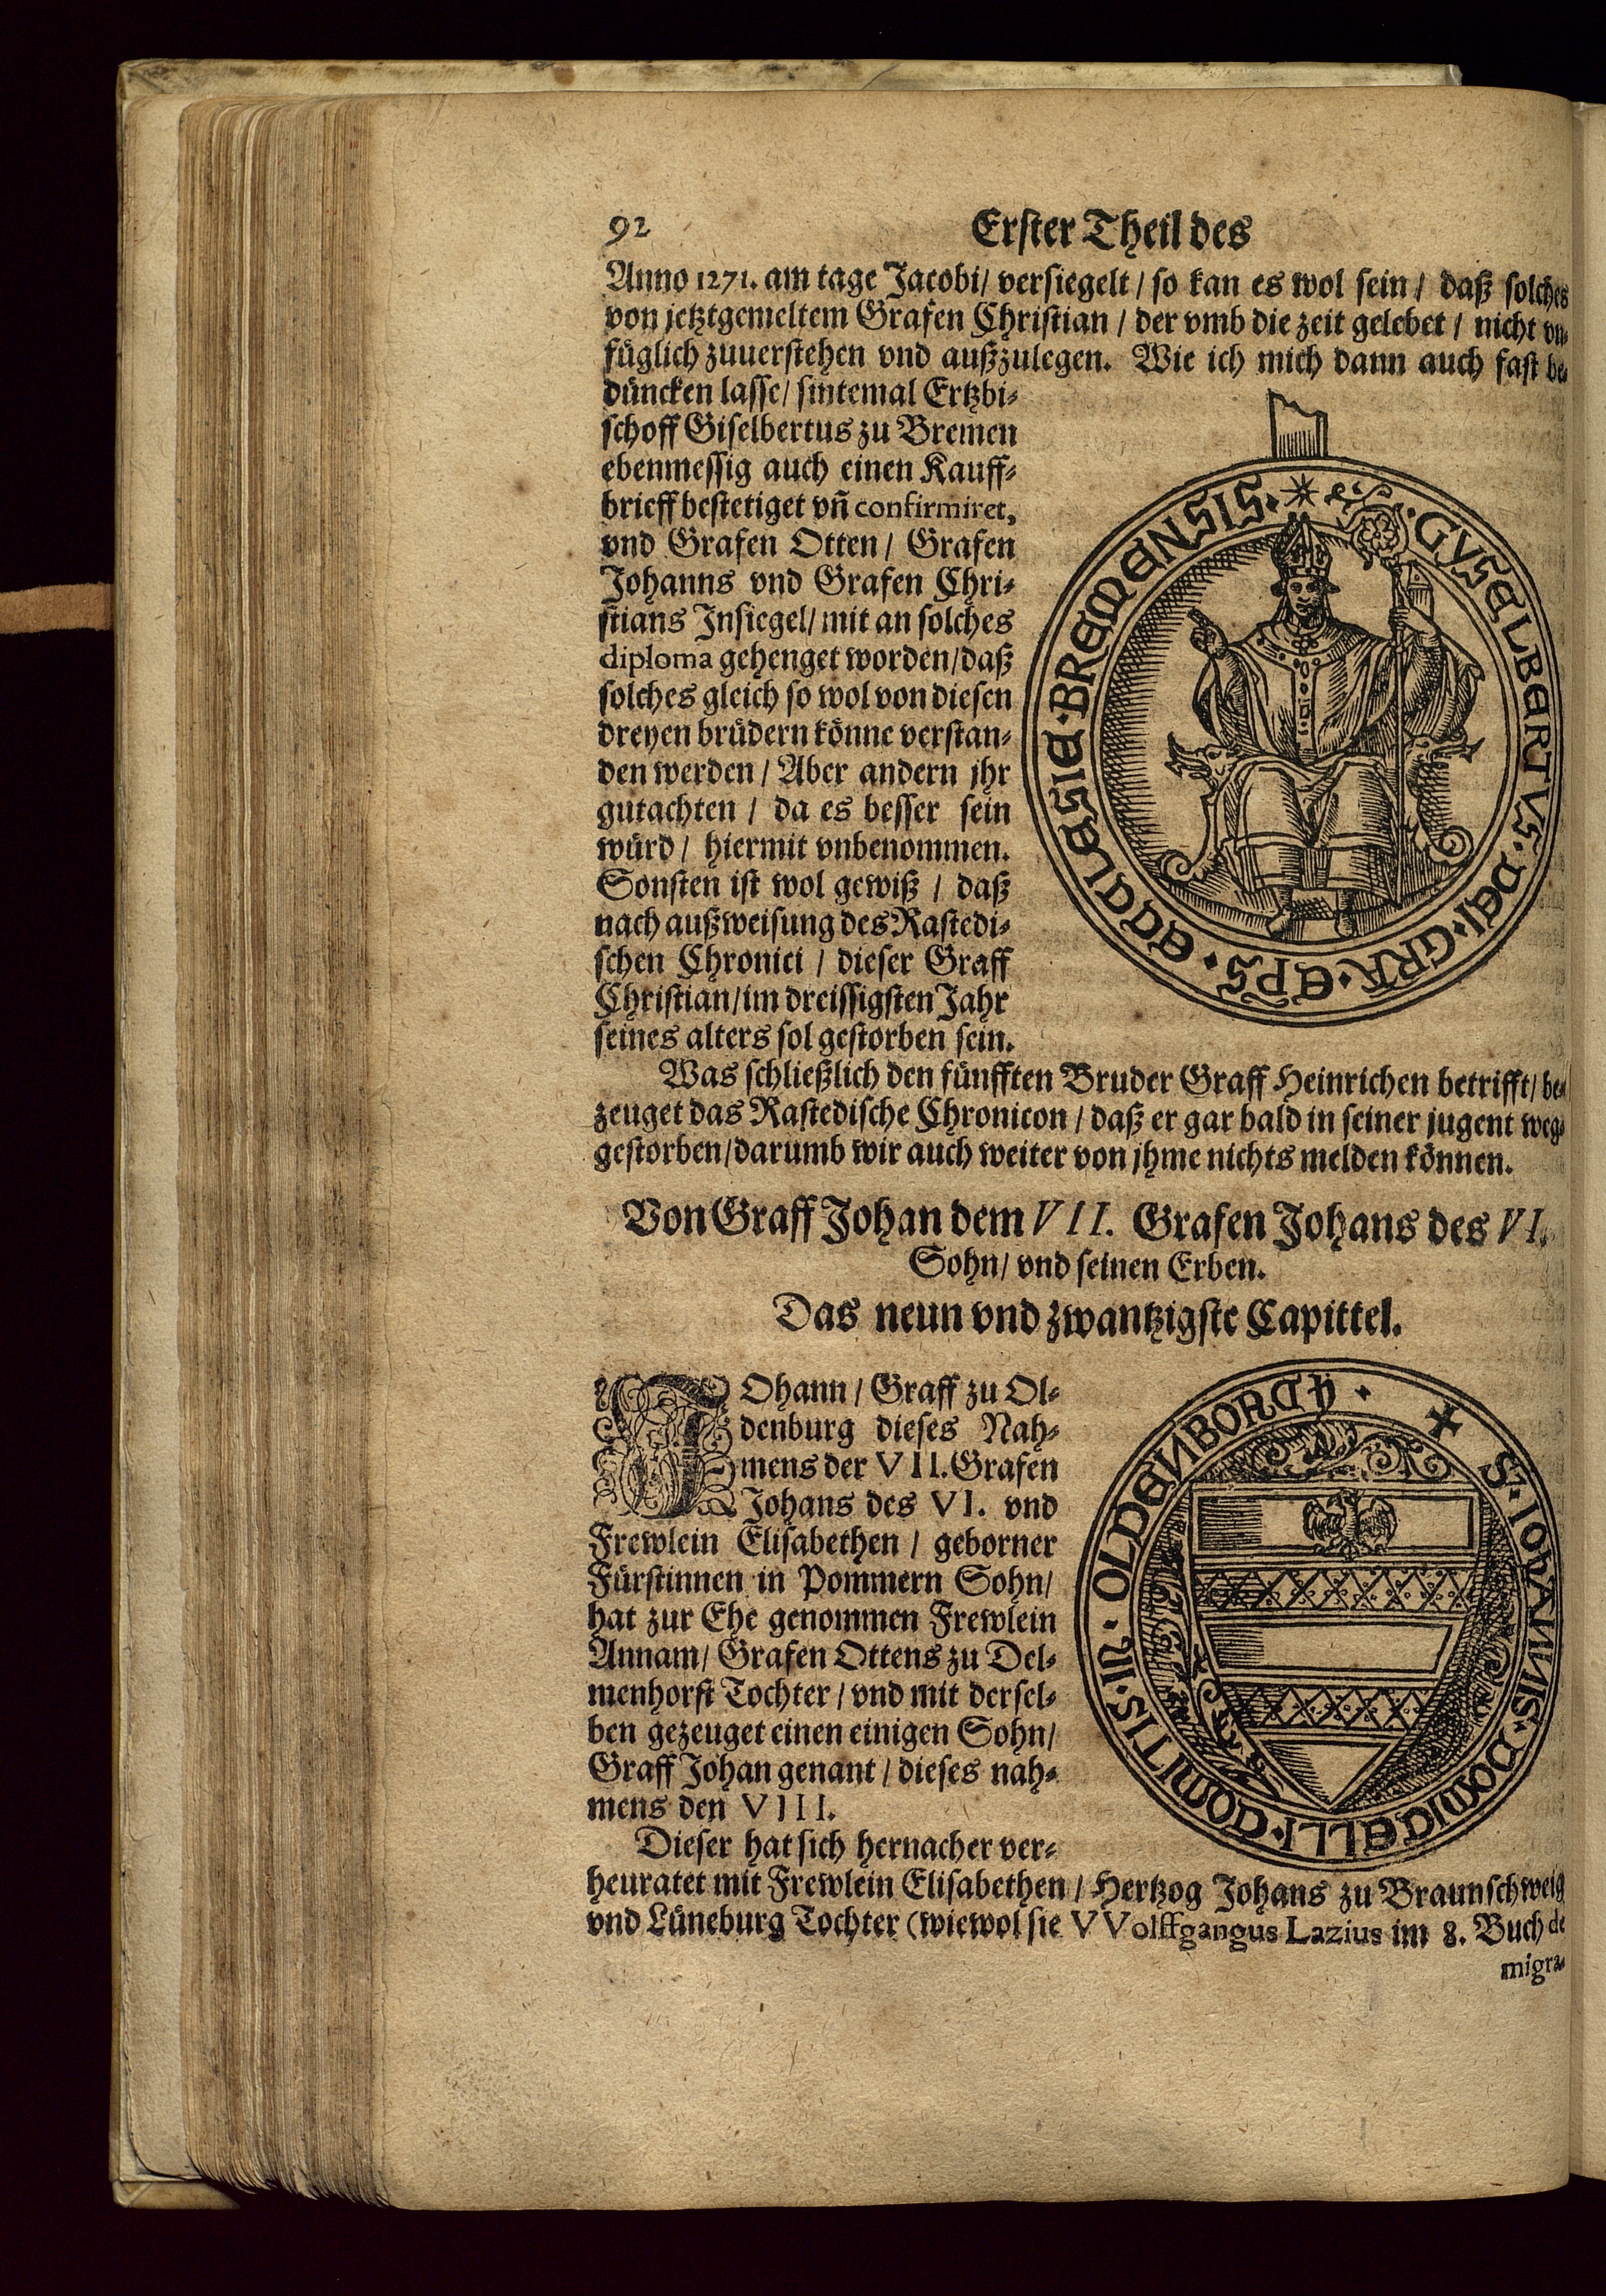 92 Erster Theil des
Anno 1271. am tage Jacobi/ versiegelt/ so kan es wol sein/ daß solches
von jetztgemeltem Grafen Christian/ der vmb die zeit gelebet/ nicht vn-
füglich zuuerstehen vnd außzulegen. Wie ich mich dann auch fast be-
düncken lasse/ sintemal Ertzbi-
schoff Giselbertus zu Bremen
ebenmessig auch einen Kauff-
brieff bestetiget vñ confirmiret,
vnd Grafen Otten/ Grafen
Johanns vnd Grafen Chri-
stians Insiegel/ mit an solches
diploma gehenget worden/ daß
solches gleich so wol von diesen
dreyen brüdern könne verstan-
den werden/ Aber andern jhr
gutachten/ da es besser sein
würd/ hiermit vnbenommen.
Sonsten ist wol gewiß/ daß
nach außweisung des Rastedi-
schen Chronici/ dieser Graff
Christian/ im dreissigsten Jahr
seines alters sol gestorben sein.
GYSELBERTVS · DEI · GRA · EPS · ECCLESIE · BREMENSIS ·
Was schließlich den fünfften Bruder Graff Heinrichen betrifft/ be-
zeuget das Rastedische Chronicon/ daß er gar bald in seiner jugent weg-
gestorben/ darumb wir auch weiter von jhme nichts melden können.
Von Graff Johan dem VII. Grafen Johans des VI.
Sohn/ vnd seinen Erben.
Das neun vnd zwantzigste Capittel.
JOhann/ Graff zu Ol-
denburg dieses Nah-
mens der VII. Grafen
Johans des VI. vnd
Frewlein Elisabethen/ geborner
Fürstinnen in Pommern Sohn/
hat zur Ehe genommen Frewlein
Annam/ Grafen Ottens zu Del-
menhorst Tochter/ vnd mit dersel-
ben gezeuget einen einigen Sohn/
Graff Johan genant/ dieses nah-
mens den VIII.
✝ S · IOHANNIS · DOMICELLI · COMITIS · IN · OLDENBORCH ·
Dieser hat sich hernacher ver-
heuratet mit Frewlein Elisabethen/ Hertzog Johans zu Braunschweig
vnd Lüneburg Tochter (wiewol sie VVolffgangus Lazius im 8. Buch de
migra-